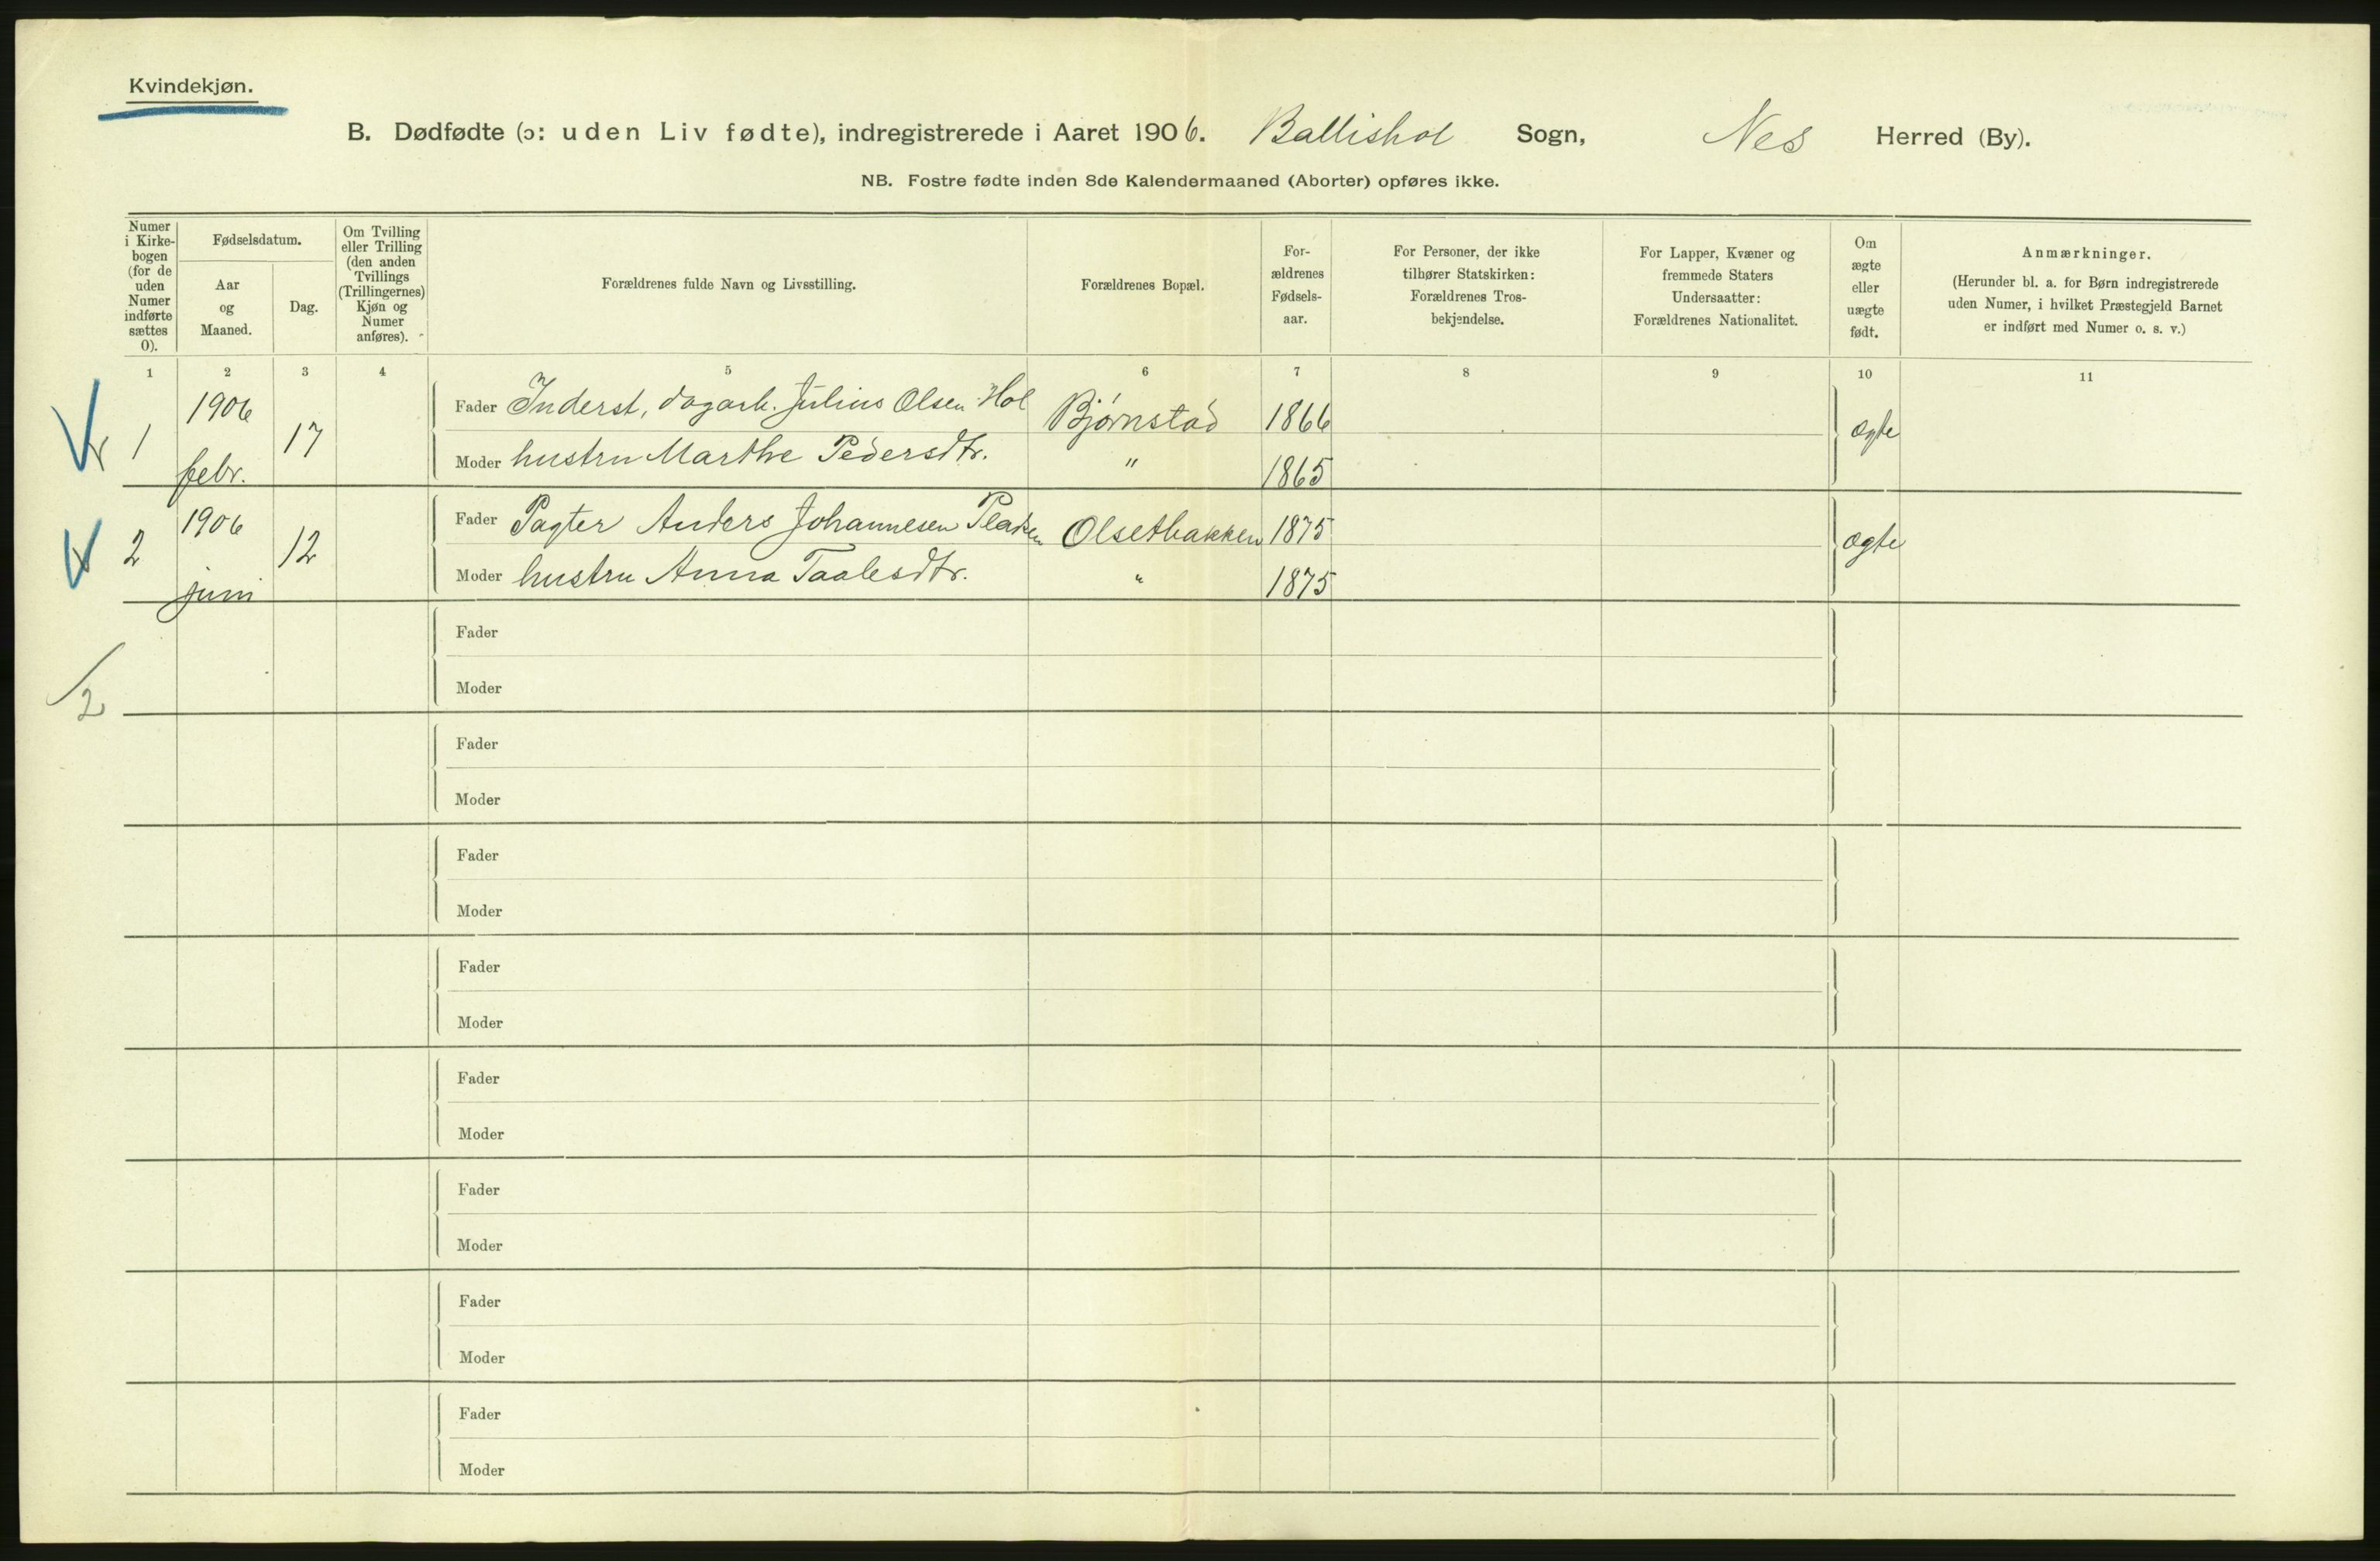 Kvindekjøn.
B. Dødfødte (ɔ: uden Liv fødte), indregistrerede i Aaret 1906. Ballishol Sogn, Nes Herred (By).
NB. Fostre fødte inden 8de Kalendermaaned (Aborter) opføres ikke.
Numer i Kirke-bogen (for de uden Numer indførte sættes 0).
Fødselsdatum.
Aar og Maaned.
Dag.
Om Tvilling eller Trilling (den anden Tvillings (Trillingernes) Kjøn og Numer anføres).
Forældrenes fulde Navn og Livsstilling.
Forældrenes Bopæl.
For-ældrenes Fødsels-aar.
For Personer, der ikke tilhører Statskirken: Forældrenes Tros-bekjendelse.
For Lapper, Kvæner og fremmede Staters Undersaatter: Forældrenes Nationalitet.
Om ægte eller uægte født.
Anmærkninger.
(Herunder bl. a. for Børn indregistrerede uden Numer, i hvilket Præstegjeld Barnet er indført med Numer o. s. v.)
1 2 3 4 5 6 7 8 9 10 11
1 1906 febr. 17 Fader Inderst, dagarb. Julius Olsen Hol Bjørnstad 1866 ægte
Moder hustru Marthe Pedersdtr. " 1865
2 1906 juni 12 Fader Pagter Anders Johannesen Olsethakken 1875 ægte
Moder hustru Anna Taalesdtr. " 1875
Fader
2
Moder
Fader
Moder
Fader
Moder
Fader
Moder
Fader
Moder
Fader
Moder
Fader
Moder
Fader
Moder